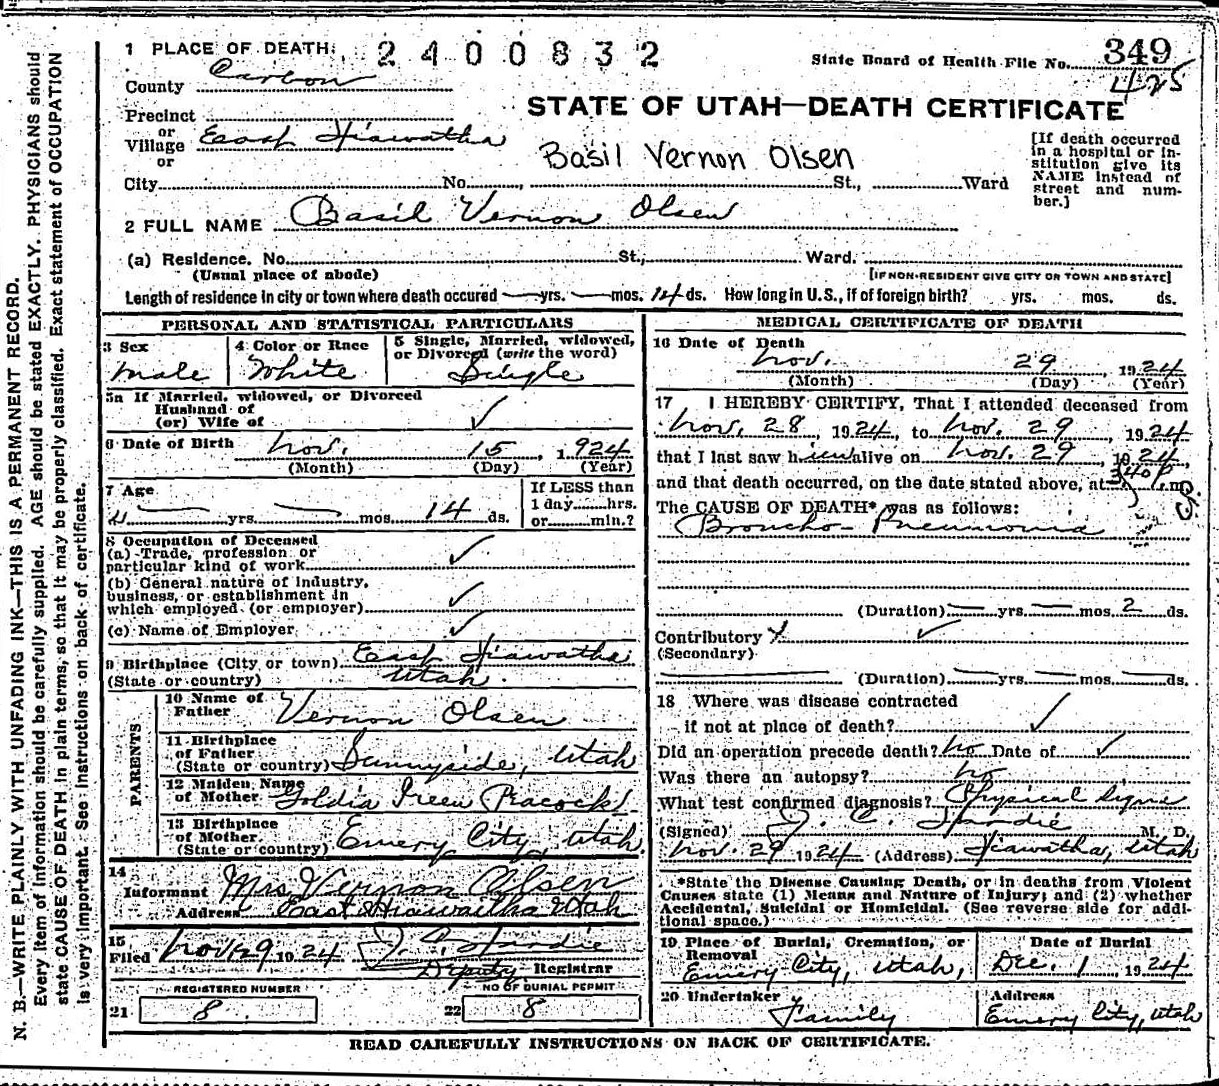 1 PLACE OF DEATH: 2400832
State Board of Health File No. 349
425
County Carbon
STATE OF UTAH—DEATH CERTIFICATE
Precinct
or
Village East Hiawatha
or
Basil Vernon Olsen
[If death occurred in a hospital or institution give its NAME instead of street and number.]
City No. , St., Ward
2 FULL NAME Basil Vernon Olsen
(a) Residence. No. St., Ward.
(Usual place of abode) [IF NON-RESIDENT GIVE CITY OR TOWN AND STATE]
Length of residence in city or town where death occured — yrs. — mos. 14 ds. How long in U.S., if of foreign birth? yrs. mos. ds.
PERSONAL AND STATISTICAL PARTICULARS
3 Sex
Male
4 Color or Race
White
5 Single, Married, widowed, or Divorced (write the word)
Single
5a If Married, widowed, or Divorced
Husband of
(or) Wife of ✓
6 Date of Birth Nov. 15, 1924
(Month) (Day) (Year)
7 Age
— yrs. — mos. 14 ds.
If LESS than
1 day hrs.
or min.?
8 Occupation of Deceased
(a) Trade, profession or
particular kind of work ✓
(b) General nature of Industry,
business, or establishment in
which employed (or employer) ✓
(c) Name of Employer ✓
9 Birthplace (City or town) East Hiawatha
(State or country) Utah.
PARENTS
10 Name of
Father Vernon Olsen
11 Birthplace
of Father
(State or country) Sunnyside, Utah
12 Maiden Name
of Mother Goldia Ireen Peacock
13 Birthplace
of Mother
(State or country) Emery City, Utah.
14
Informant Mrs Vernon Olsen
Address East Hiawaitha Utah
15
Filed Nov 29 1924 J. C. Hardie
Deputy Registrar
REGISTERED NUMBER
21 8
NO OF BURIAL PERMIT
22 8
MEDICAL CERTIFICATE OF DEATH
16 Date of Death
Nov. 29, 1924
(Month) (Day) (Year)
17 I HEREBY CERTIFY, That I attended deceased from
Nov. 28, 1924, to Nov. 29, 1924
that I last saw him alive on Nov. 29, 1924,
and that death occurred, on the date stated above, at 340 P. m.
The CAUSE OF DEATH* was as follows:
Broncho-Pneumonia
(Duration) — yrs. — mos. 2 ds.
Contributory ✓
(Secondary)
(Duration) — yrs. — mos. — ds.
18 Where was disease contracted
if not at place of death? ✓
Did an operation precede death? No Date of ✓
Was there an autopsy? no
What test confirmed diagnosis? Physical Signs
(Signed) J. C. Hardie M. D.
Nov. 29 1924 (Address) Hiawatha, Utah
*State the Disease Causing Death, or in deaths from Violent
Causes state (1) Means and Nature of Injury; and (2) whether
Accidental, Suicidal or Homicidal. (See reverse side for additional space.)
19 Place of Burial, Cremation, or
Removal
Emery City, Utah,
Date of Burial
Dec. 1 1924
20 Undertaker
Family
Address
Emery City, Utah
READ CAREFULLY INSTRUCTIONS ON BACK OF CERTIFICATE.
N. B.—WRITE PLAINLY WITH UNFADING INK—THIS IS A PERMANENT RECORD.
Every item of information should be carefully supplied. AGE should be stated EXACTLY. PHYSICIANS should
state CAUSE OF DEATH in plain terms, so that it may be properly classified. Exact statement of OCCUPATION
is very important. See instructions on back of certificate.